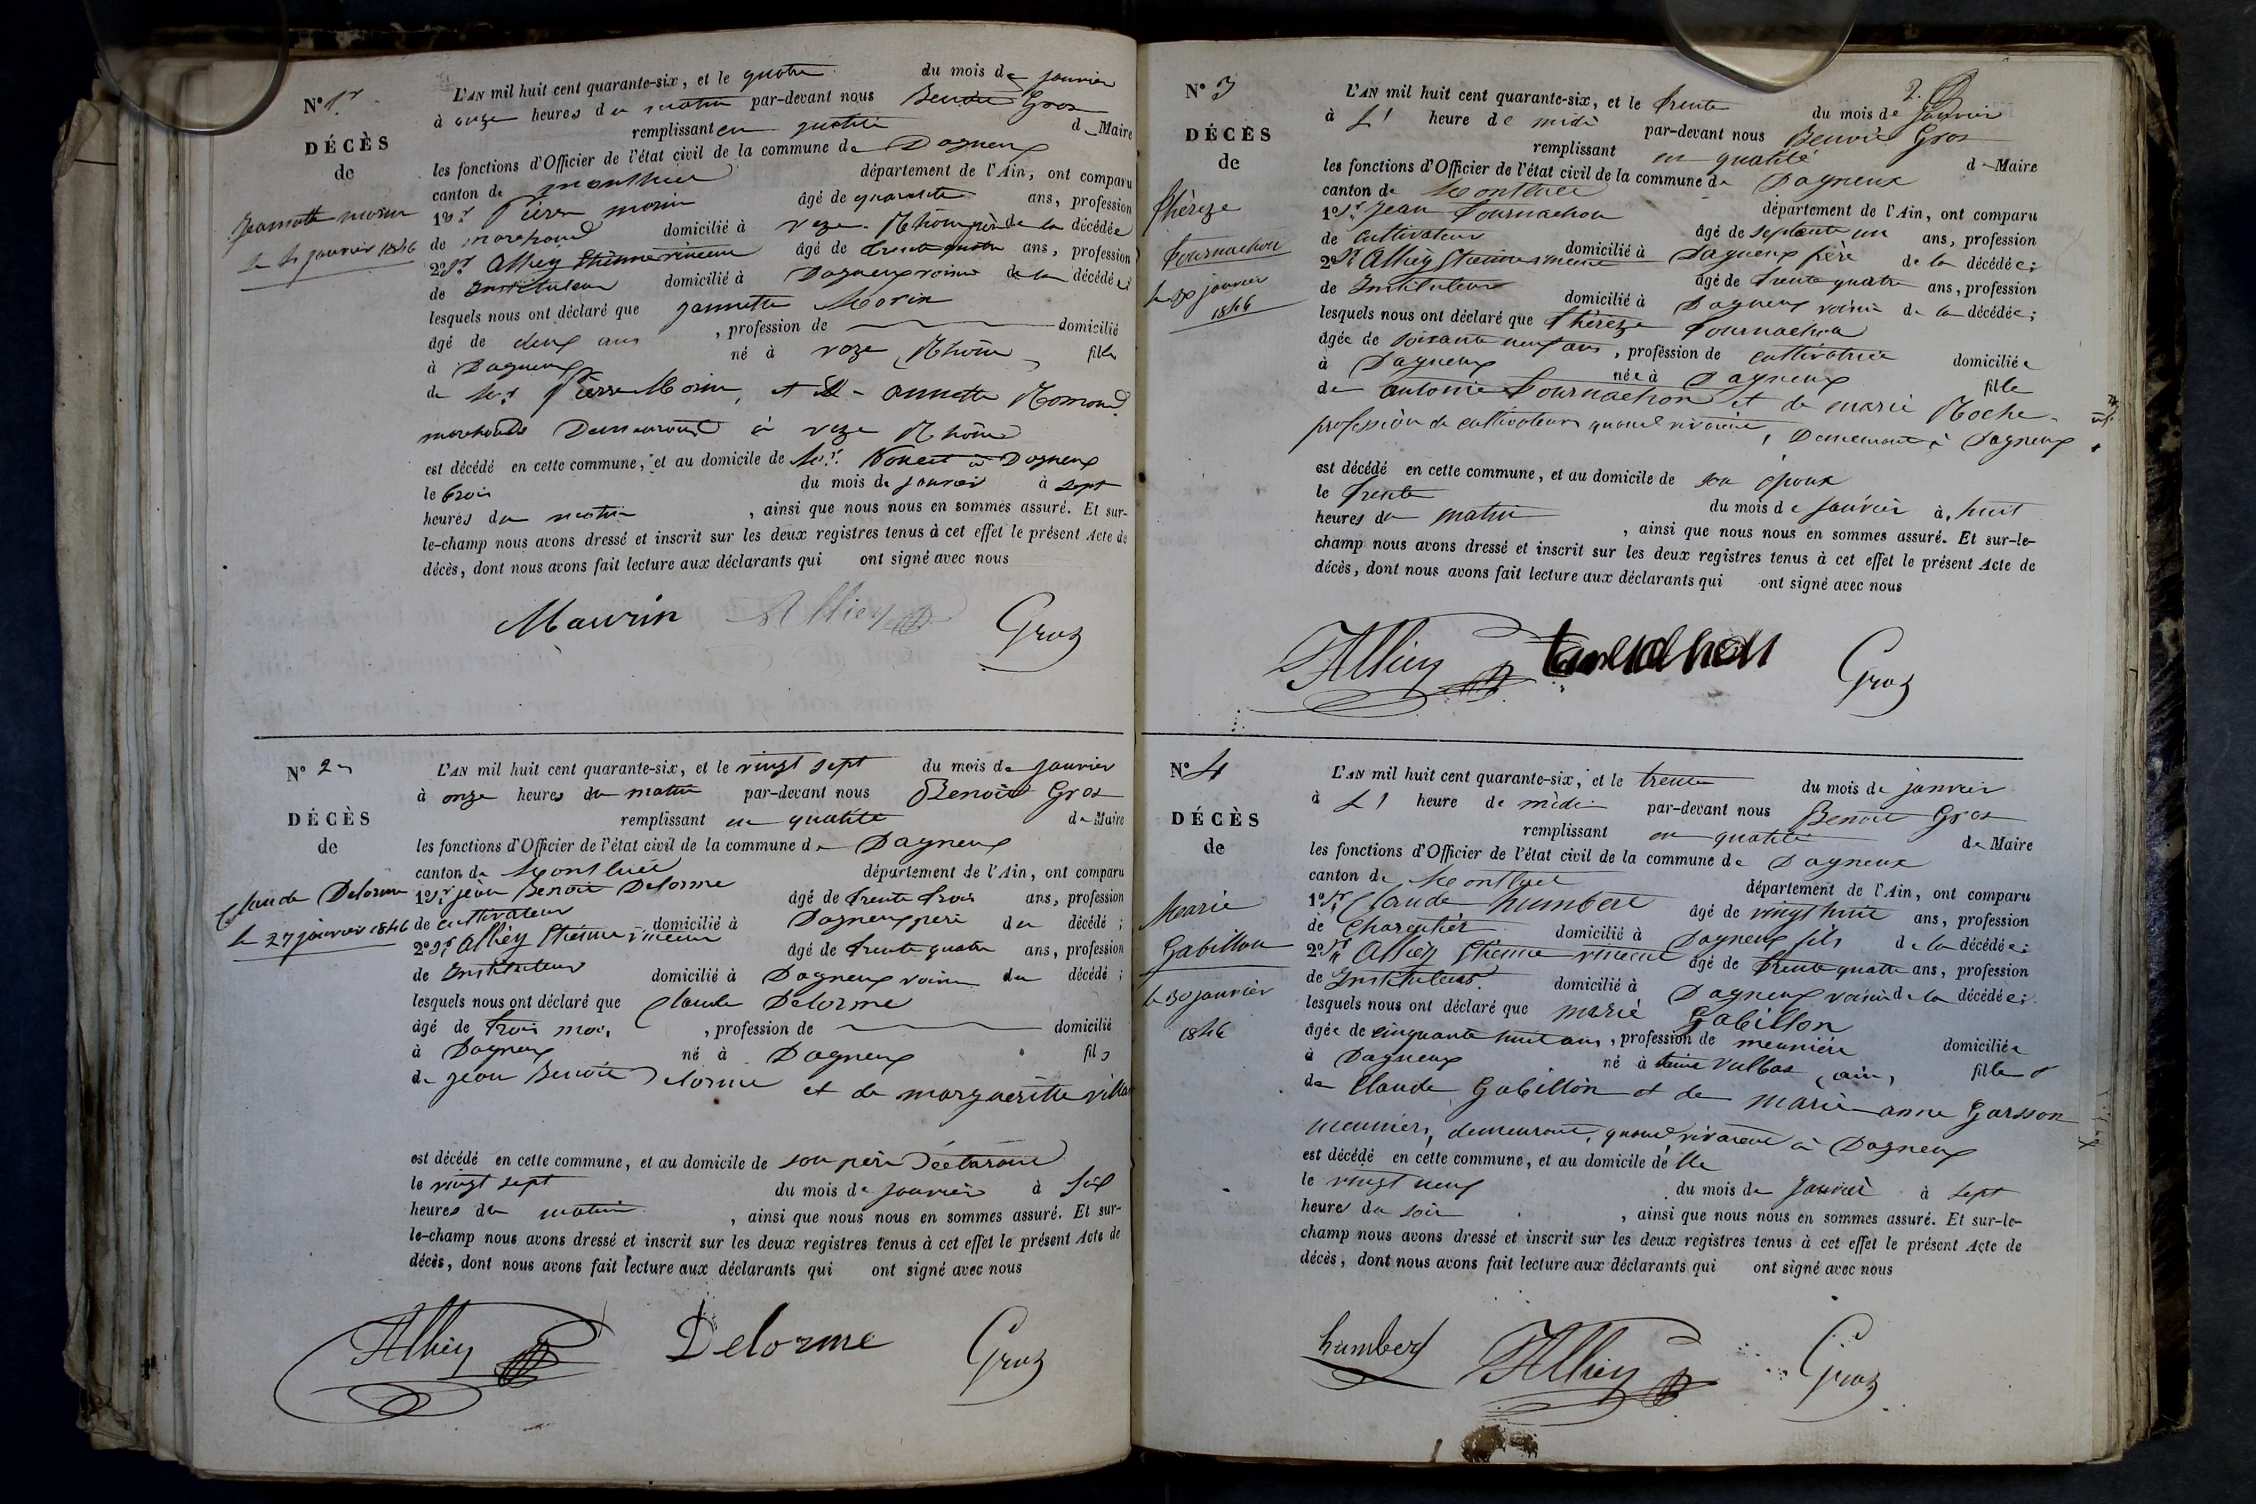 N° 1r
DÉCÈS
de
Jeannette morin
le 4 janvier 1846
L'AN mil huit cent quarante-six, et le quatre du mois de janvier
à onze heures du matin par-devant nous Benoit Gros
remplissant en qualité de Maire
les fonctions d'Officier de l'état civil de la commune de Dagneux
canton de montluel département de l'Ain, ont comparu
1° Sr Pierre morin âgé de quarante ans, profession
de marchand domicilié à vaze Rhône père de la décédée
2° Sr Alhey Etienne vincent âgé de trente quatre ans, profession
de Instituteur domicilié à Dagneux voisin de la décédée
lesquels nous ont déclaré que jannette Morin
âgé de deux ans , profession de domicilié
à Dagneux né à vaze Rhône fille
de Mr Pierre Morin, et de annette
marchands Demeurant à vaze Rhône
est décédé en cette commune, et au domicile de Mr. à Dagneux
le trois du mois de janvier à sept
heures du matin , ainsi que nous nous en sommes assuré. Et sur-
le-champ nous avons dressé et inscrit sur les deux registres tenus à cet effet le présent Acte de
décès, dont nous avons fait lecture aux déclarants qui ont signé avec nous
Maurin Alhey Gros
N° 2
DÉCÈS
de
Claude Delorme
le 27 janvier 1846
L'AN mil huit cent quarante-six, et le vingt sept du mois de janvier
à onze heures du matin par-devant nous Benoit Gros
remplissant en qualité de Maire
les fonctions d'Officier de l'état civil de la commune de Dagneux
canton de Montluel département de l'Ain, ont comparu
1° Sr jean Benoit Delorme âgé de trente trois ans, profession
de cultivateur domicilié à Dagneux père du décédé ;
2° Sr Alhey Etienne vincent âgé de trente quatre ans, profession
de Instituteur domicilié à Dagneux voisin du décédé ;
lesquels nous ont déclaré que Claude Delorme
âgé de trois mois , profession de domicilié
à Dagneux né à Dagneux fils
de jean Benoit Delorme et de margueritte
est décédé en cette commune, et au domicile de son père Déclarant
le vingt sept du mois de janvier à six
heures du matin , ainsi que nous nous en sommes assuré. Et sur-
le-champ nous avons dressé et inscrit sur les deux registres tenus à cet effet le présent Acte de
décès, dont nous avons fait lecture aux déclarants qui ont signé avec nous
Alhey Delorme Gros
2.
N° 3
DÉCÈS
de
thèreze
tournachon
le 30 janvier
1846
L'AN mil huit cent quarante-six, et le trente du mois de janvier
à L 1 heure de midi par-devant nous Benoit Gros
remplissant en qualité de Maire
les fonctions d'Officier de l'état civil de la commune de Dagneux
canton de Montluel département de l'Ain, ont comparu
1° Sr Jean tournachon âgé de septante un ans, profession
de cultivateur domicilié à Dagneux père de la décédée ;
2° Sr Alhey Etienne vincent âgé de trente quatre ans, profession
de Instituteur domicilié à Dagneux voisin de la décédée ;
lesquels nous ont déclaré que thèreze tournachon
âgée de soixante neuf ans , profession de cultivatrice domiciliée
à Dagneux née à Dagneux fille
de antonie tournachon et de marie Roche
profession de cultivateurs quand vivaient, Demeurant à Dagneux
est décédé en cette commune, et au domicile de son époux
le trente du mois de janvier à huit
heures du matin , ainsi que nous nous en sommes assuré. Et sur-le-
champ nous avons dressé et inscrit sur les deux registres tenus à cet effet le présent Acte de
décès, dont nous avons fait lecture aux déclarants qui ont signé avec nous
Alhey tournachon Gros
N° 4
DÉCÈS
de
Marie
Gabillon
le 30 janvier
1846
L'AN mil huit cent quarante-six, et le trente du mois de janvier
à L 1 heure de midi par-devant nous Benoit Gros
remplissant en qualité de Maire
les fonctions d'Officier de l'état civil de la commune de Dagneux
canton de Montluel département de l'Ain, ont comparu
1° Sr Claude humbert âgé de vingt huit ans, profession
de Charpentier domicilié à Dagneux fils de la décédée ;
2° Sr Alhey Etienne vincent âgé de trente quatre ans, profession
de Instituteur. domicilié à Dagneux voisin de la décédée ;
lesquels nous ont déclaré que marie Gabillon
âgée de cinquante huit ans , profession de meunière domiciliée
à Dagneux né à Vulbas (ain) fille
de Claude Gabillon et de marie anne Garsson
meuniers, demeurant, quand vivaient à Dagneux
est décédé en cette commune, et au domicile d'elle
le vingt neuf du mois de janvier à sept
heures du soir , ainsi que nous nous en sommes assuré. Et sur-le-
champ nous avons dressé et inscrit sur les deux registres tenus à cet effet le présent Acte de
décès, dont nous avons fait lecture aux déclarants qui ont signé avec nous
humbert Alhey Gros